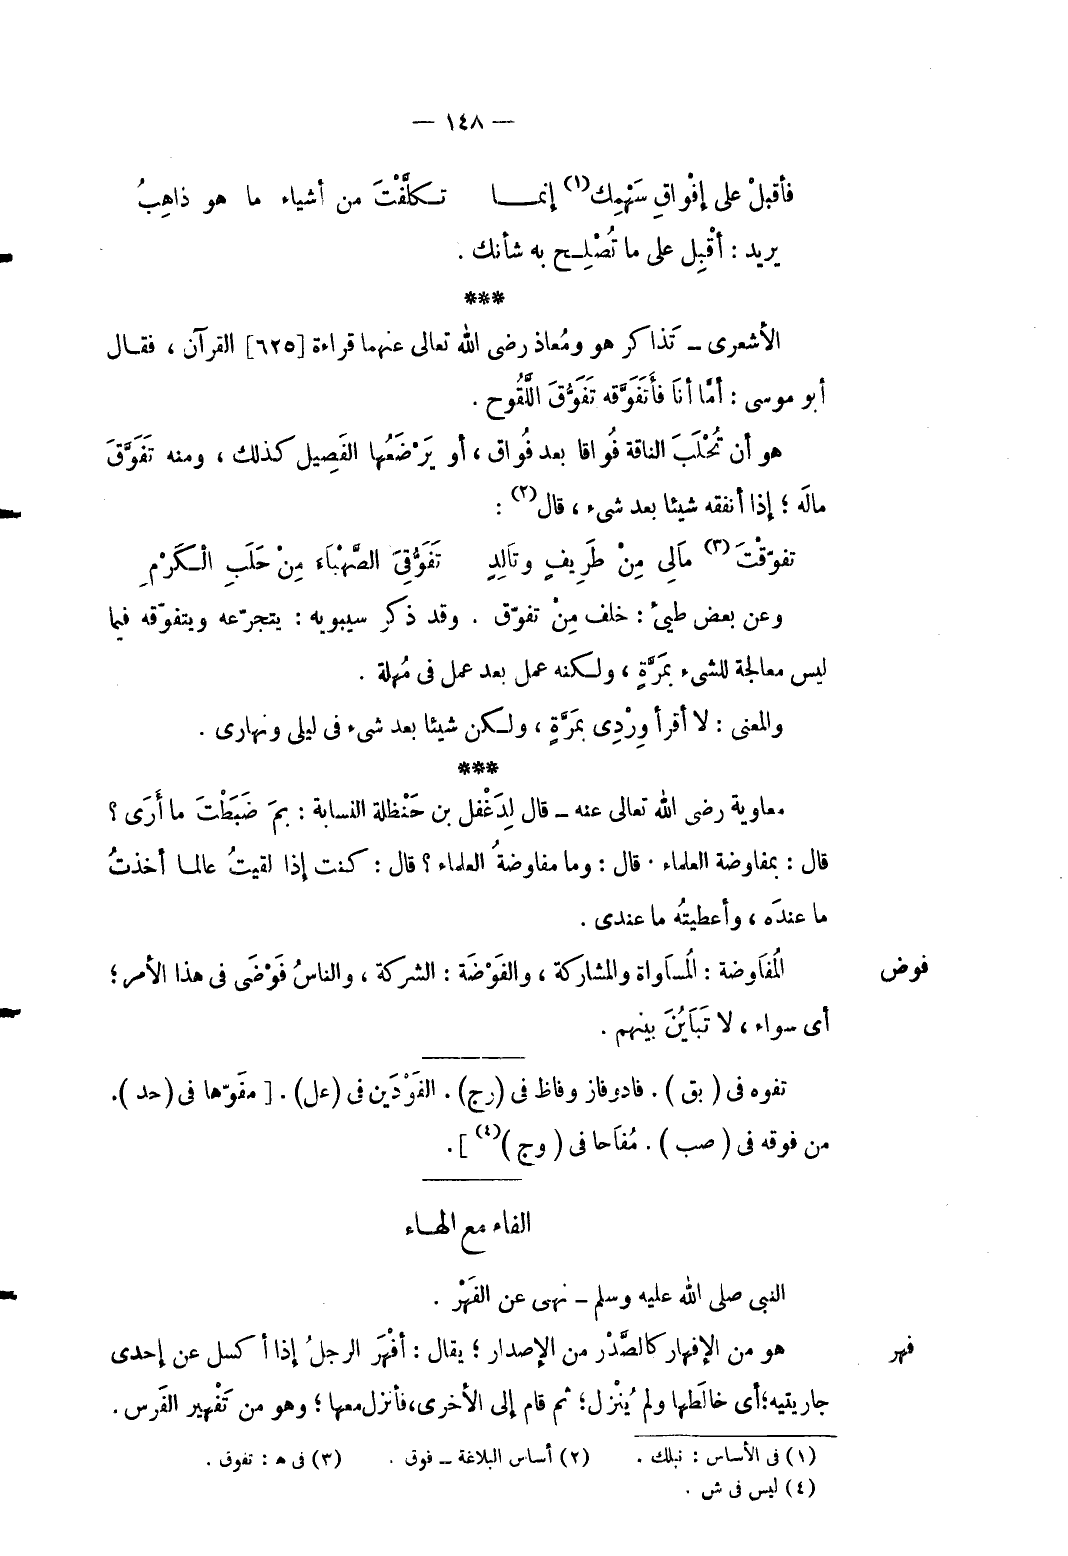 — ١٤٨ —
فأقبلْ على إفْواقِ سَهْمِك(١) إنمـــا تـكلَّفْتَ من أشياء ما هو ذاهِبُ
يريد : أقْبِل على ما تُصْلِـح به شأنك .
***
الأشعرى ــ تَذاكر هو ومُعاذ رضى الله تعالى عنهما قراءة [٦٢٥] القرآن ، فقـال
أبو موسى : أمَّا أنَا فأَتَفَوَّقه تَفَوُّقَ اللَّقُوح .
هو أن تُحْلَبَ الناقة فُواقا بعد فُواق ، أو يَرْضَعُها الفَصِيل كذلك ، ومنه تَفَوَّقَ
مالَه ؛ إذا أنفقه شيئا بعد شىء ، قال(٢) :
تفوّقْتَ(٣) مَالِى مِنْ طَرِيفٍ وتَالِدٍ تَفَوُّقِىَ الصَّهْبَاَءَ مِنْ حَلَبِ الْـكَرْمِ
وعن بعض طيئ : خلف مِنْ تفوّق . وقد ذكر سيبويه : يتجرّعه ويتفوّقه فيما
ليس معالجة للشىء بمَرَّةٍ ، ولـكنه عمل بعد عمل فى مُهلة .
والمعنى : لا أقرأ وِرْدِى بمَرَّةٍ ، ولـكن شيئا بعد شىء فى ليلى ونهارى .
***
معاوية رضى الله تعالى عنه ــ قال لِدَغْفل بن حَنْظلة النسابة : بِمَ ضَبَطْتَ ما أَرَى ؟
قال : بمفاوضة العلماء . قال : وما مفاوضةُ العلماء ؟ قال : كنت إذا لقيتُ عالمـا أخذتُ
ما عندَه ، وأعطيتُه ما عندى .
فوض المُفَاوضة : المُساَواة والمشاركة ، والفَوْضَة : الشركة ، والناسُ فَوْضَى فى هذا الأمر ؛
أى سواء ، لا تَبَايُنَ بينهم .
تفوه فى ( بق ) . فادوفاز وفاظ فى (رج) . الفَوْدَين فى (عل) . [ مفَوّها فى (حد ) .
من فوقه فى ( صب ) . مُفَاحا فى ( وج )(٤) ] .
الفاء مع الهـاء
النبى صلى الله عليه وسلم ــ نهى عن الفَهْر .
فهر هو من الإفهار كالصَّدْر من الإصدار ؛ يقال : أفْهَرَ الرجلُ إذا أكسل عن إحدى
جاريتيه ؛ أى خالَطها ولم يُنْزل ؛ ثم قام إلى الأخرى ، فأنزل معها ؛ وهو من تَفْهير الفَرس .
(١) فى الأساس : نبلك . (٢) أساس البلاغة ــ فوق . (٣) فى هـ : تفوق .
(٤) ليس فى ش .